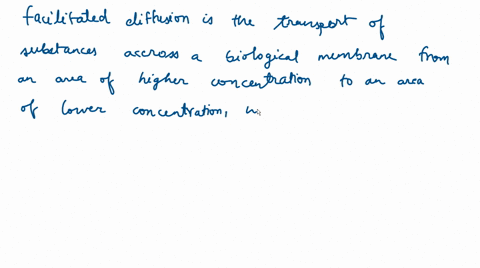 facilitated diffusion is the transport of
substances accross a biological membrane from
an area of higher concentration to an area
of lower concentration,